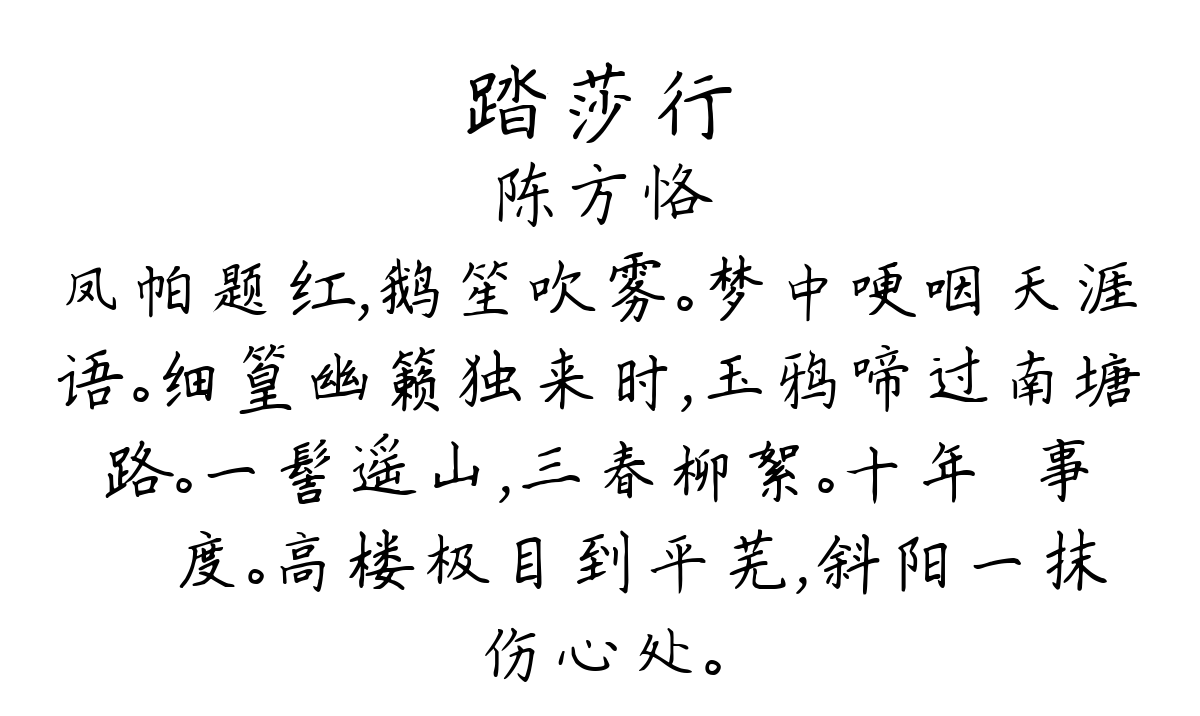 踏莎行
陈方恪
凤帕题红,鹅笙吹雾。梦中哽咽天涯
语。细篁幽籁独来时,玉鸦啼过南塘
路。一髻遥山,三春柳絮。十年 事
度。高楼极目到平芜,斜阳一抹
伤心处。